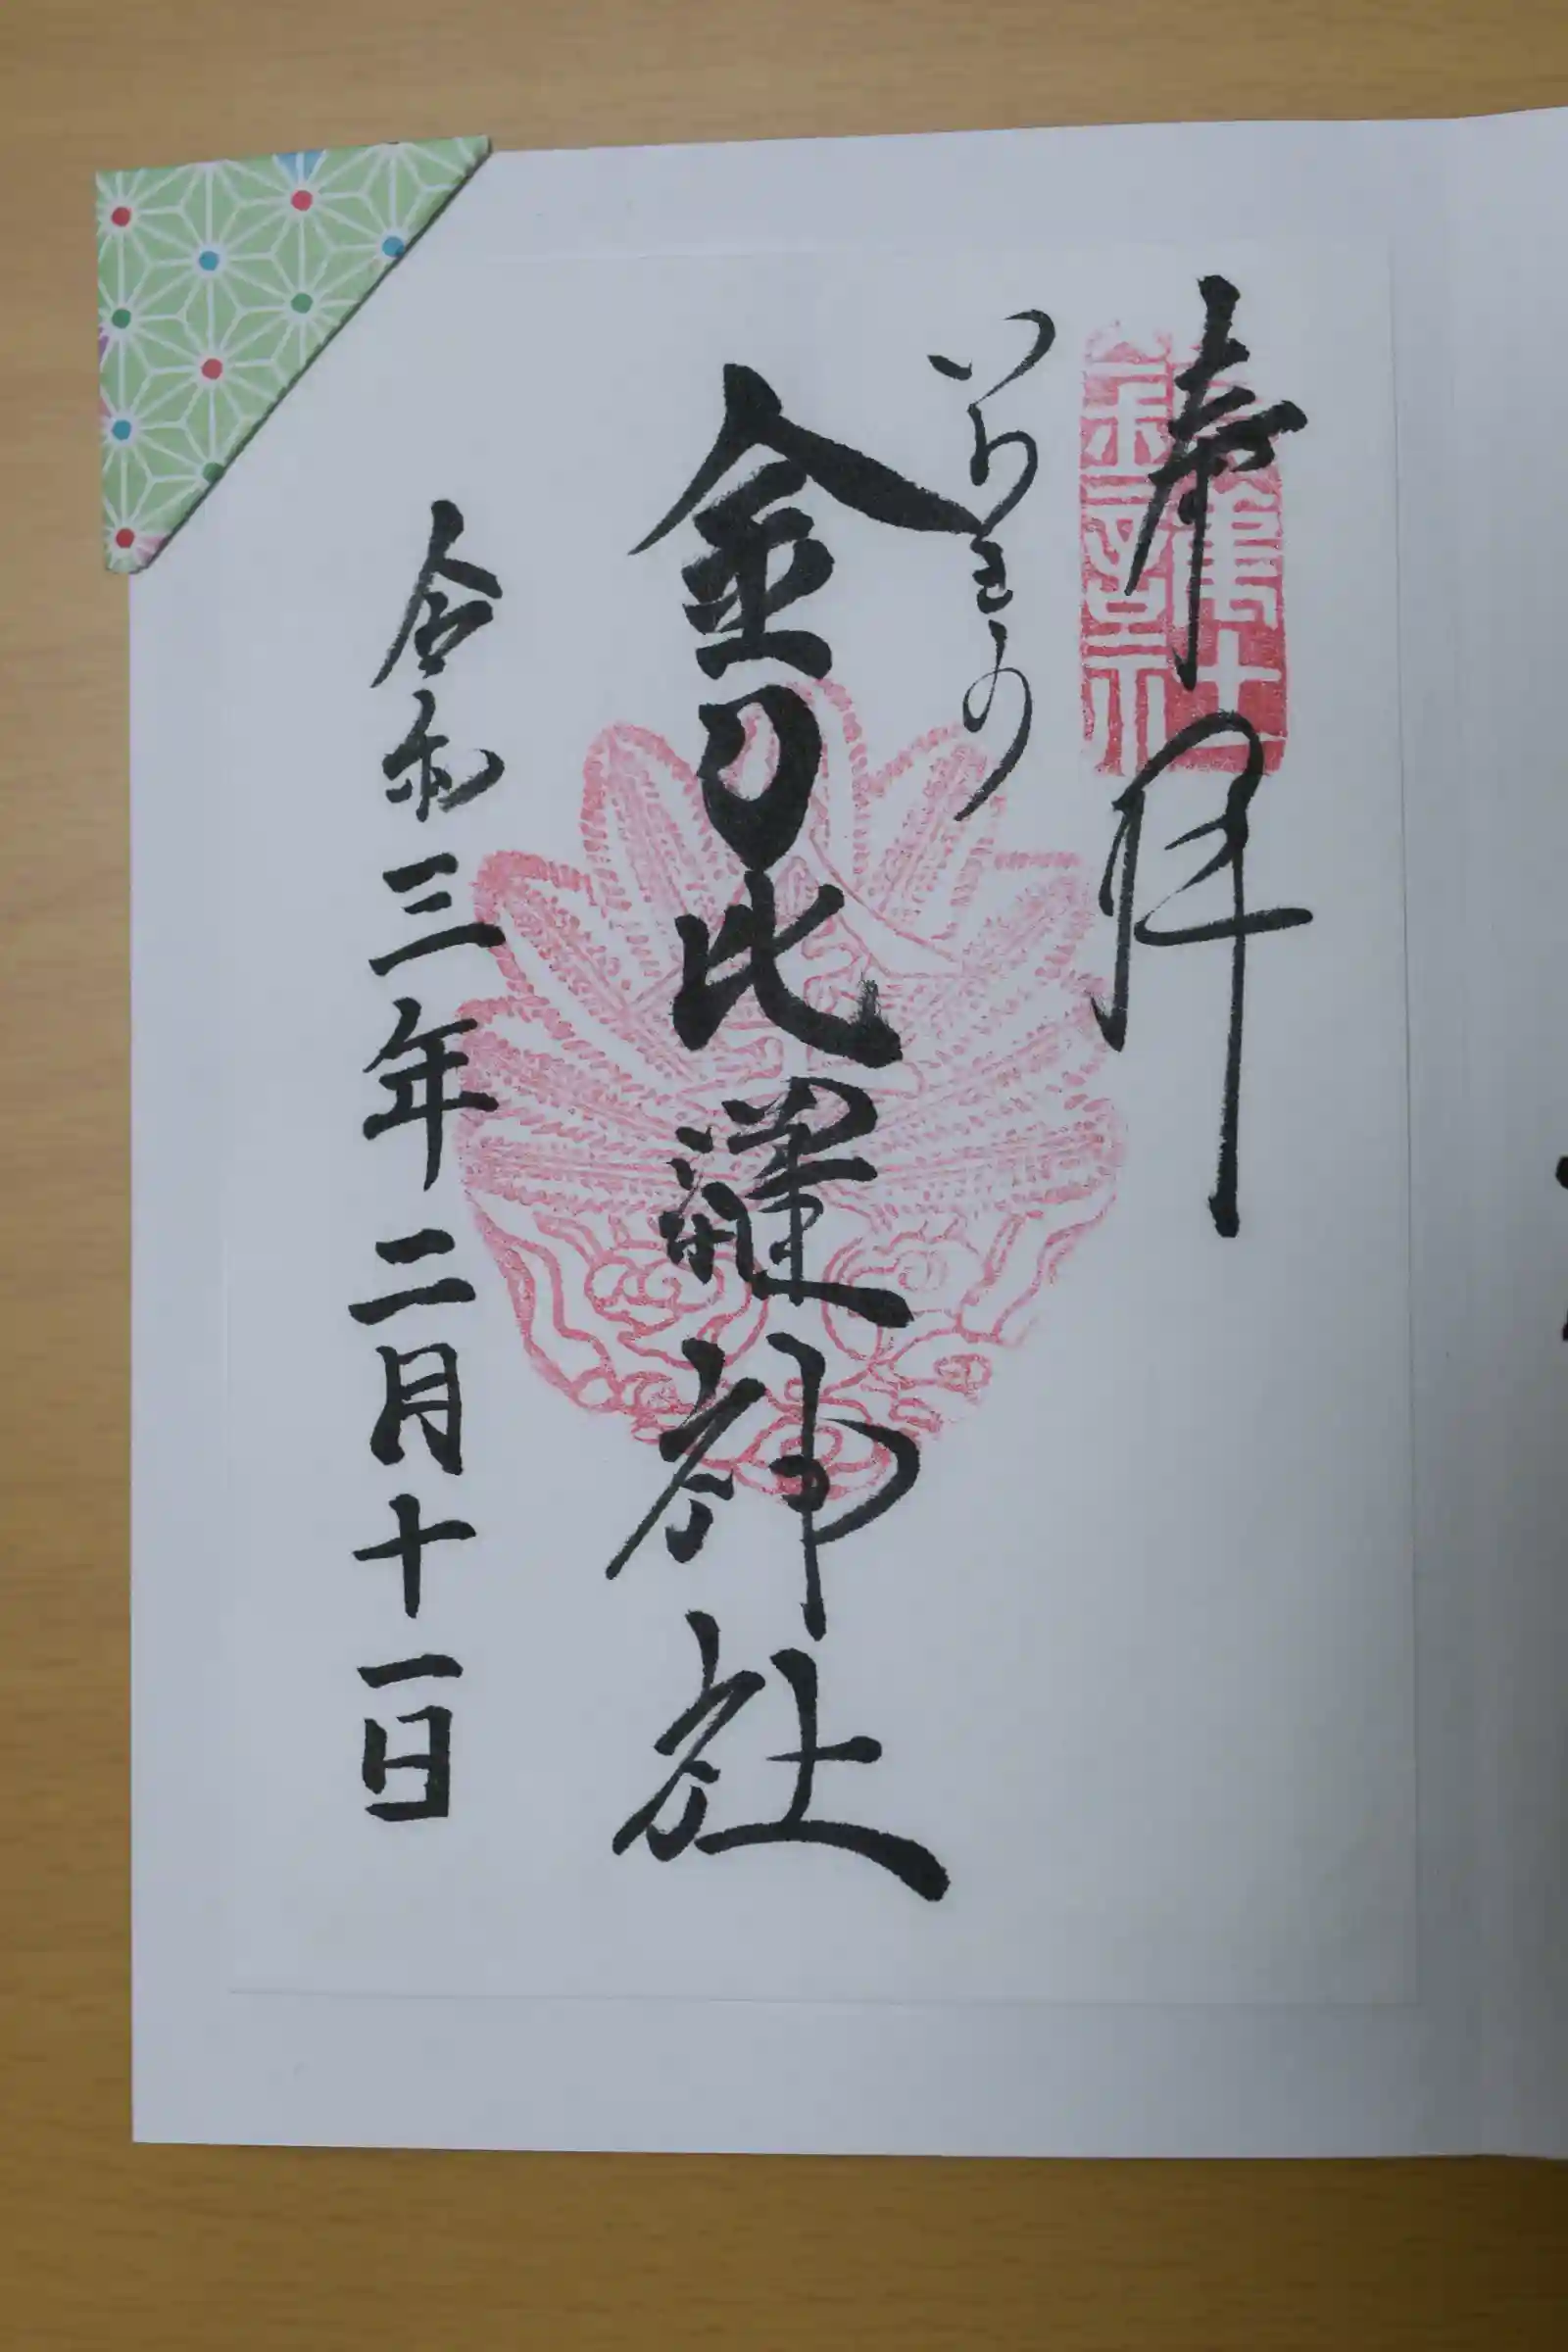 奉拝
いりきの
金刀比羅神社
令和三年二月十一日